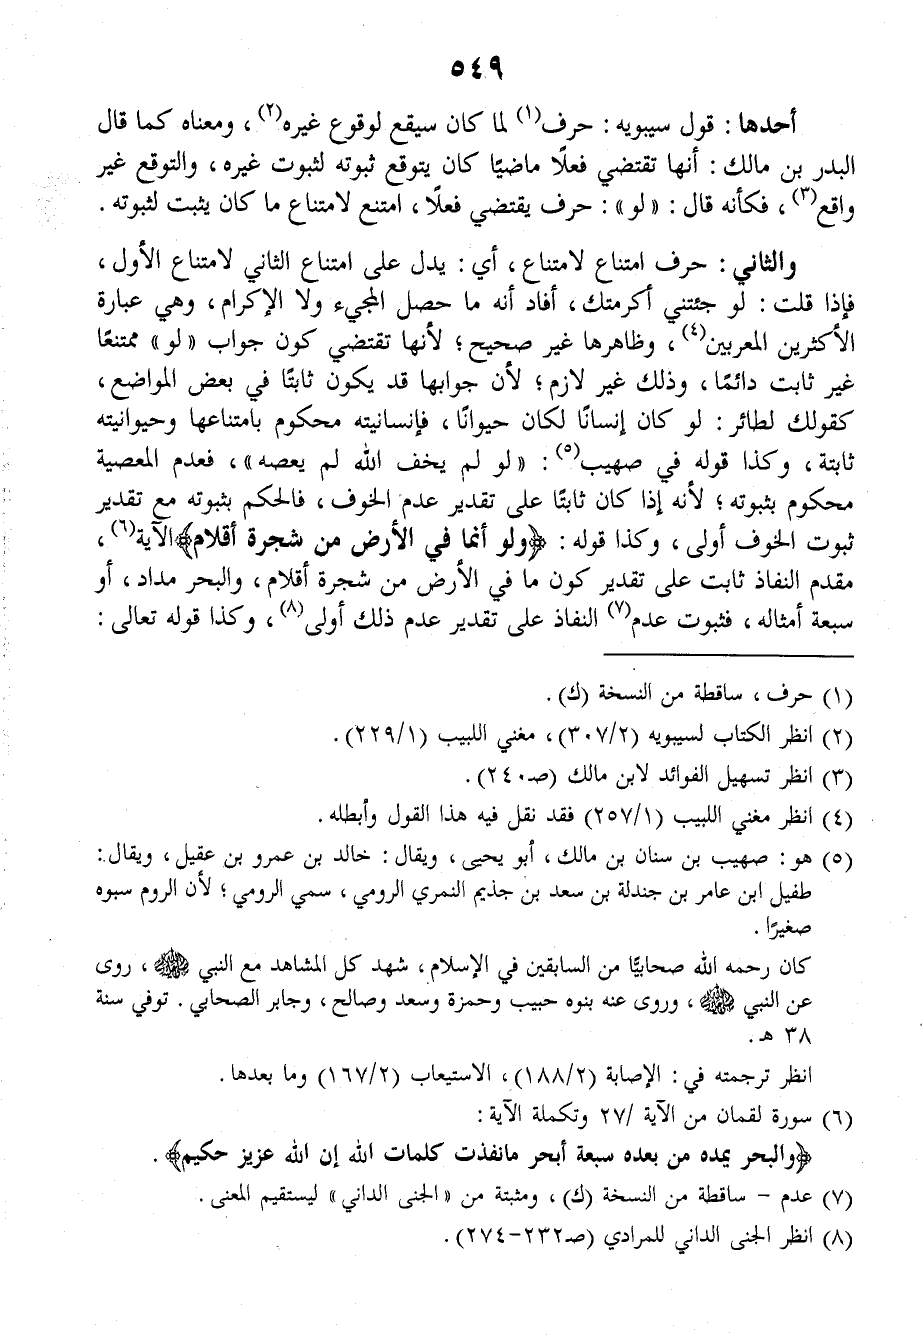 ٥٤٩
أحدها : قول سيبويه : حرف(١) لما كان سيقع لوقوع غيره(٢) ، ومعناه كما قال
البدر بن مالك : أنها تقتضي فعلًا ماضيًا كان يتوقع ثبوته لثبوت غيره ، والتوقع غير
واقع(٣) ، فكأنه قال : «لو» : حرف يقتضي فعلًا ، امتنع لامتناع ما كان يثبت لثبوته .
والثاني : حرف امتناع لامتناع ، أي : يدل على امتناع الثاني لامتناع الأول ،
فإذا قلت : لو جئتني أكرمتك ، أفاد أنه ما حصل المجيء ولا الإكرام ، وهي عبارة
الأكثرين المعربين(٤) ، وظاهرها غير صحيح ؛ لأنها تقتضي كون جواب «لو» ممتنعًا
غير ثابت دائمًا ، وذلك غير لازم ؛ لأن جوابها قد يكون ثابتًا في بعض المواضع ،
كقولك لطائر : لو كان إنسانًا لكان حيوانًا ، فإنسانيته محكوم بامتناعها وحيوانيته
ثابتة ، وكذا قوله في صهيب(٥) : «لو لم يخف الله لم يعصه» ، فعدم المعصية
محكوم بثبوته ؛ لأنه إذا كان ثابتًا على تقدير عدم الخوف ، فالحكم بثبوته مع تقدير
ثبوت الخوف أولى ، وكذا قوله : ﴿ولو أنما في الأرض من شجرة أقلام﴾ الآية(٦) ،
مقدم النفاذ ثابت على تقدير كون ما في الأرض من شجرة أقلام ، والبحر مداد ، أو
سبعة أمثاله ، فثبوت عدم(٧) النفاذ على تقدير عدم ذلك أولى(٨) ، وكذا قوله تعالى :
(١) حرف ، ساقطة من النسخة (ك) .
(٢) انظر الكتاب لسيبويه (٣٠٧/٢) ، مغني اللبيب (٢٢٩/١) .
(٣) انظر تسهيل الفوائد لابن مالك (صـ٢٤٠) .
(٤) انظر مغني اللبيب (٢٥٧/١) فقد نقل فيه هذا القول وأبطله .
(٥) هو : صهيب بن سنان بن مالك ، أبو يحيى ، ويقال : خالد بن عمرو بن عقيل ، ويقال :
طفيل ابن عامر بن جندلة بن سعد بن جذيم النمري الرومي ، سمي الرومي ؛ لأن الروم سبوه
صغيرًا .
كان رحمه الله صحابيًّا من السابقين في الإسلام ، شهد كل المشاهد مع النبي ﷺ ، روى
عن النبي ﷺ ، وروى عنه بنوه حبيب وحمزة وسعد وصالح ، وجابر الصحابي . توفي سنة
٣٨ هـ .
انظر ترجمته في : الإصابة (١٨٨/٢) ، الاستيعاب (١٦٧/٢) وما بعدها .
(٦) سورة لقمان من الآية /٢٧ وتكملة الآية :
﴿والبحر يمده من بعده سبعة أبحر مانفذت كلمات الله إن الله عزيز حكيم﴾ .
(٧) عدم – ساقطة من النسخة (ك) ، ومثبتة من «الجنى الداني» ليستقيم المعنى .
(٨) انظر الجنى الداني للمرادي (صـ٢٣٢–٢٧٤) .